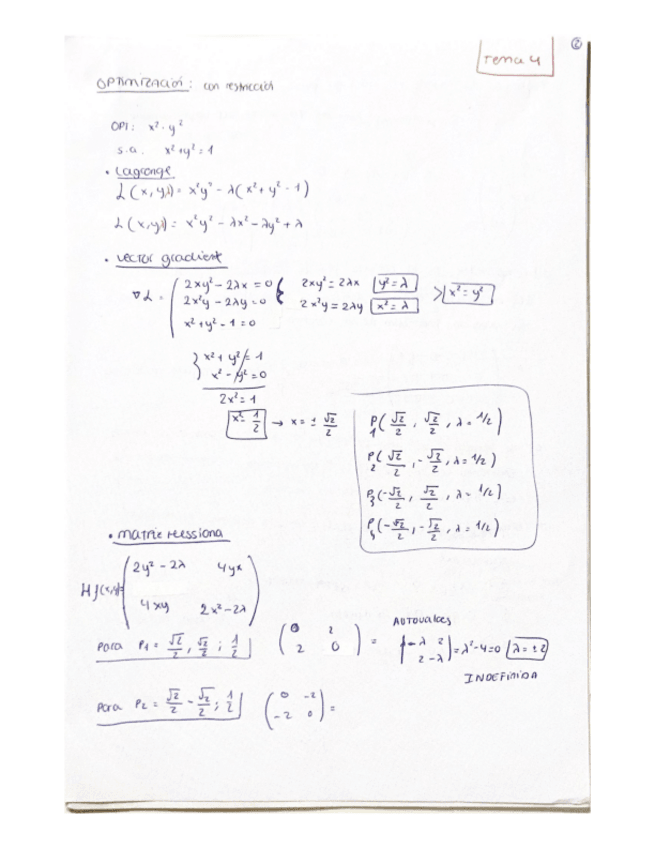 ②
Tema 4
OPTIMIZACIÓN: con restricción
OPT: x² · y²
s.a. x² + y² = 1
• Lagrange
L(x,y,λ) = x²y² - λ(x² + y² - 1)
L(x,y,λ) = x²y² - λx² - λy² + λ
• vector gradient
∇L = ( 2xy² - 2λx = 0 { 2xy² = 2λx y² = λ
2x²y - 2λy = 0 2x²y = 2λy x² = λ > x² = y²
x² + y² - 1 = 0
} x² + y² = 1
x² - y² = 0
2x² = 1
x² = 1/2 → x = ± √2/2
P1 ( √2/2 , √2/2 , λ = 1/2 )
P2 ( √2/2 , -√2/2 , λ = 1/2 )
P3 ( -√2/2 , √2/2 , λ = 1/2 )
P4 ( -√2/2 , -√2/2 , λ = 1/2 )
• matriz Hessiana
Hf(x,y) = ( 2y² - 2λ 4yx
4xy 2x² - 2λ )
para P1 = √2/2 , √2/2 ; 1/2 ( 0 2
2 0 ) =
AUTOVALORES
| -λ 2
2 -λ | = λ² - 4 = 0 λ = ±2
INDEFINIDA
para P2 = √2/2 - √2/2 ; 1/2 ( 0 -2
-2 0 ) =